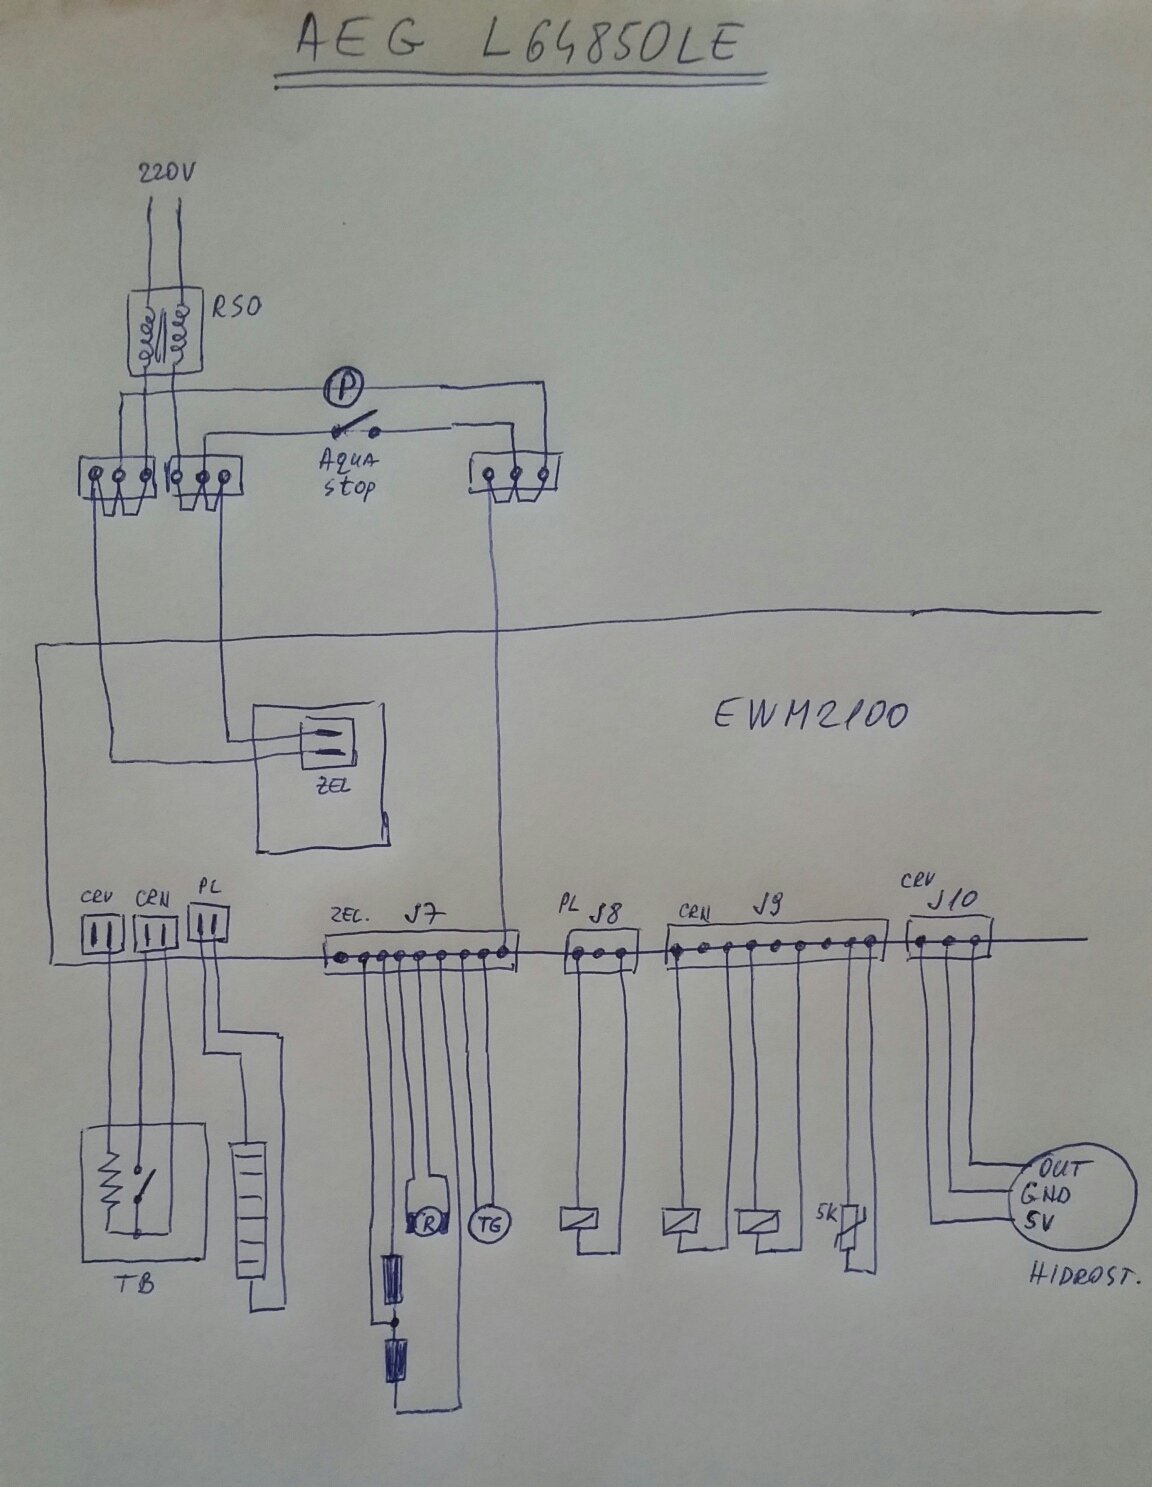 AEG L64850LE
220V
RSO
P
AQUA
stop
EWM2100
ZEL
CRV CRN PL
ZEL. J7
PL J8
CRN J9
CRV J10
OUT
GND
5V
5K
R
TG
TB
HIDROST.